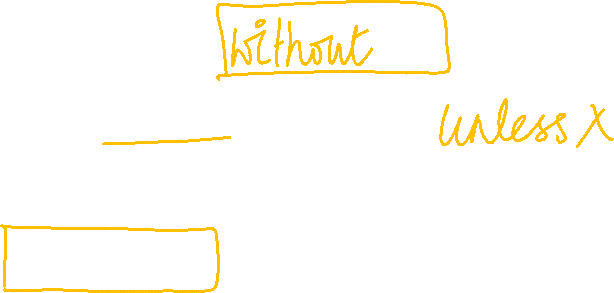 without
unless X